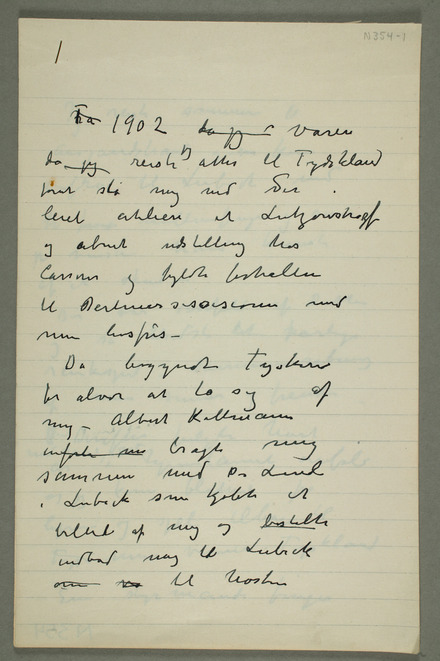 N354-1
1
Fra 1902 da jeg i varen
da jeg reiste jeg atter til Tydskland
for at slå mig ned der.
leiet atelier i Lutzowstrasse
og åbnet udstilling hos
Cassirer og fyldte forhallen
til Berlinersecessionen med
min livsfris –
Da begyndte Tyskerne
for alvor at ta sig af
mig – Albert Kollmann
bragte mig
sammen med Dr Linde
i Lübeck som kjøbte et
billed af mig og bestilte
indbød mig til Lübeck
til høsten